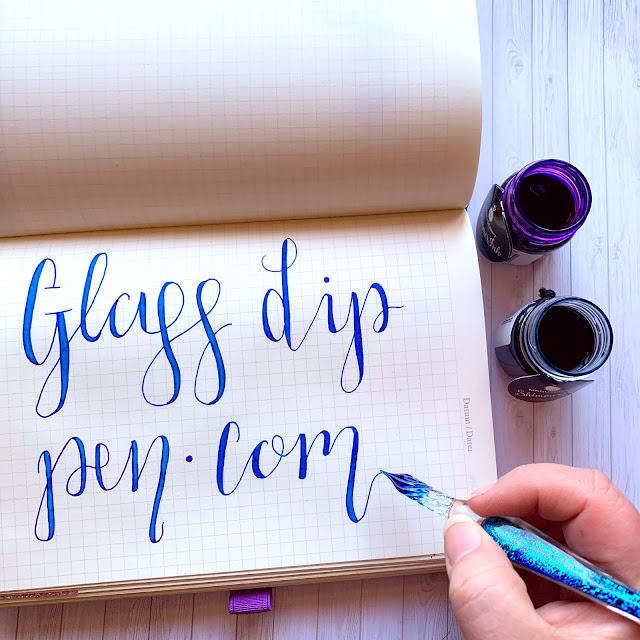 Glass dip
pen.com
Datum / Date: